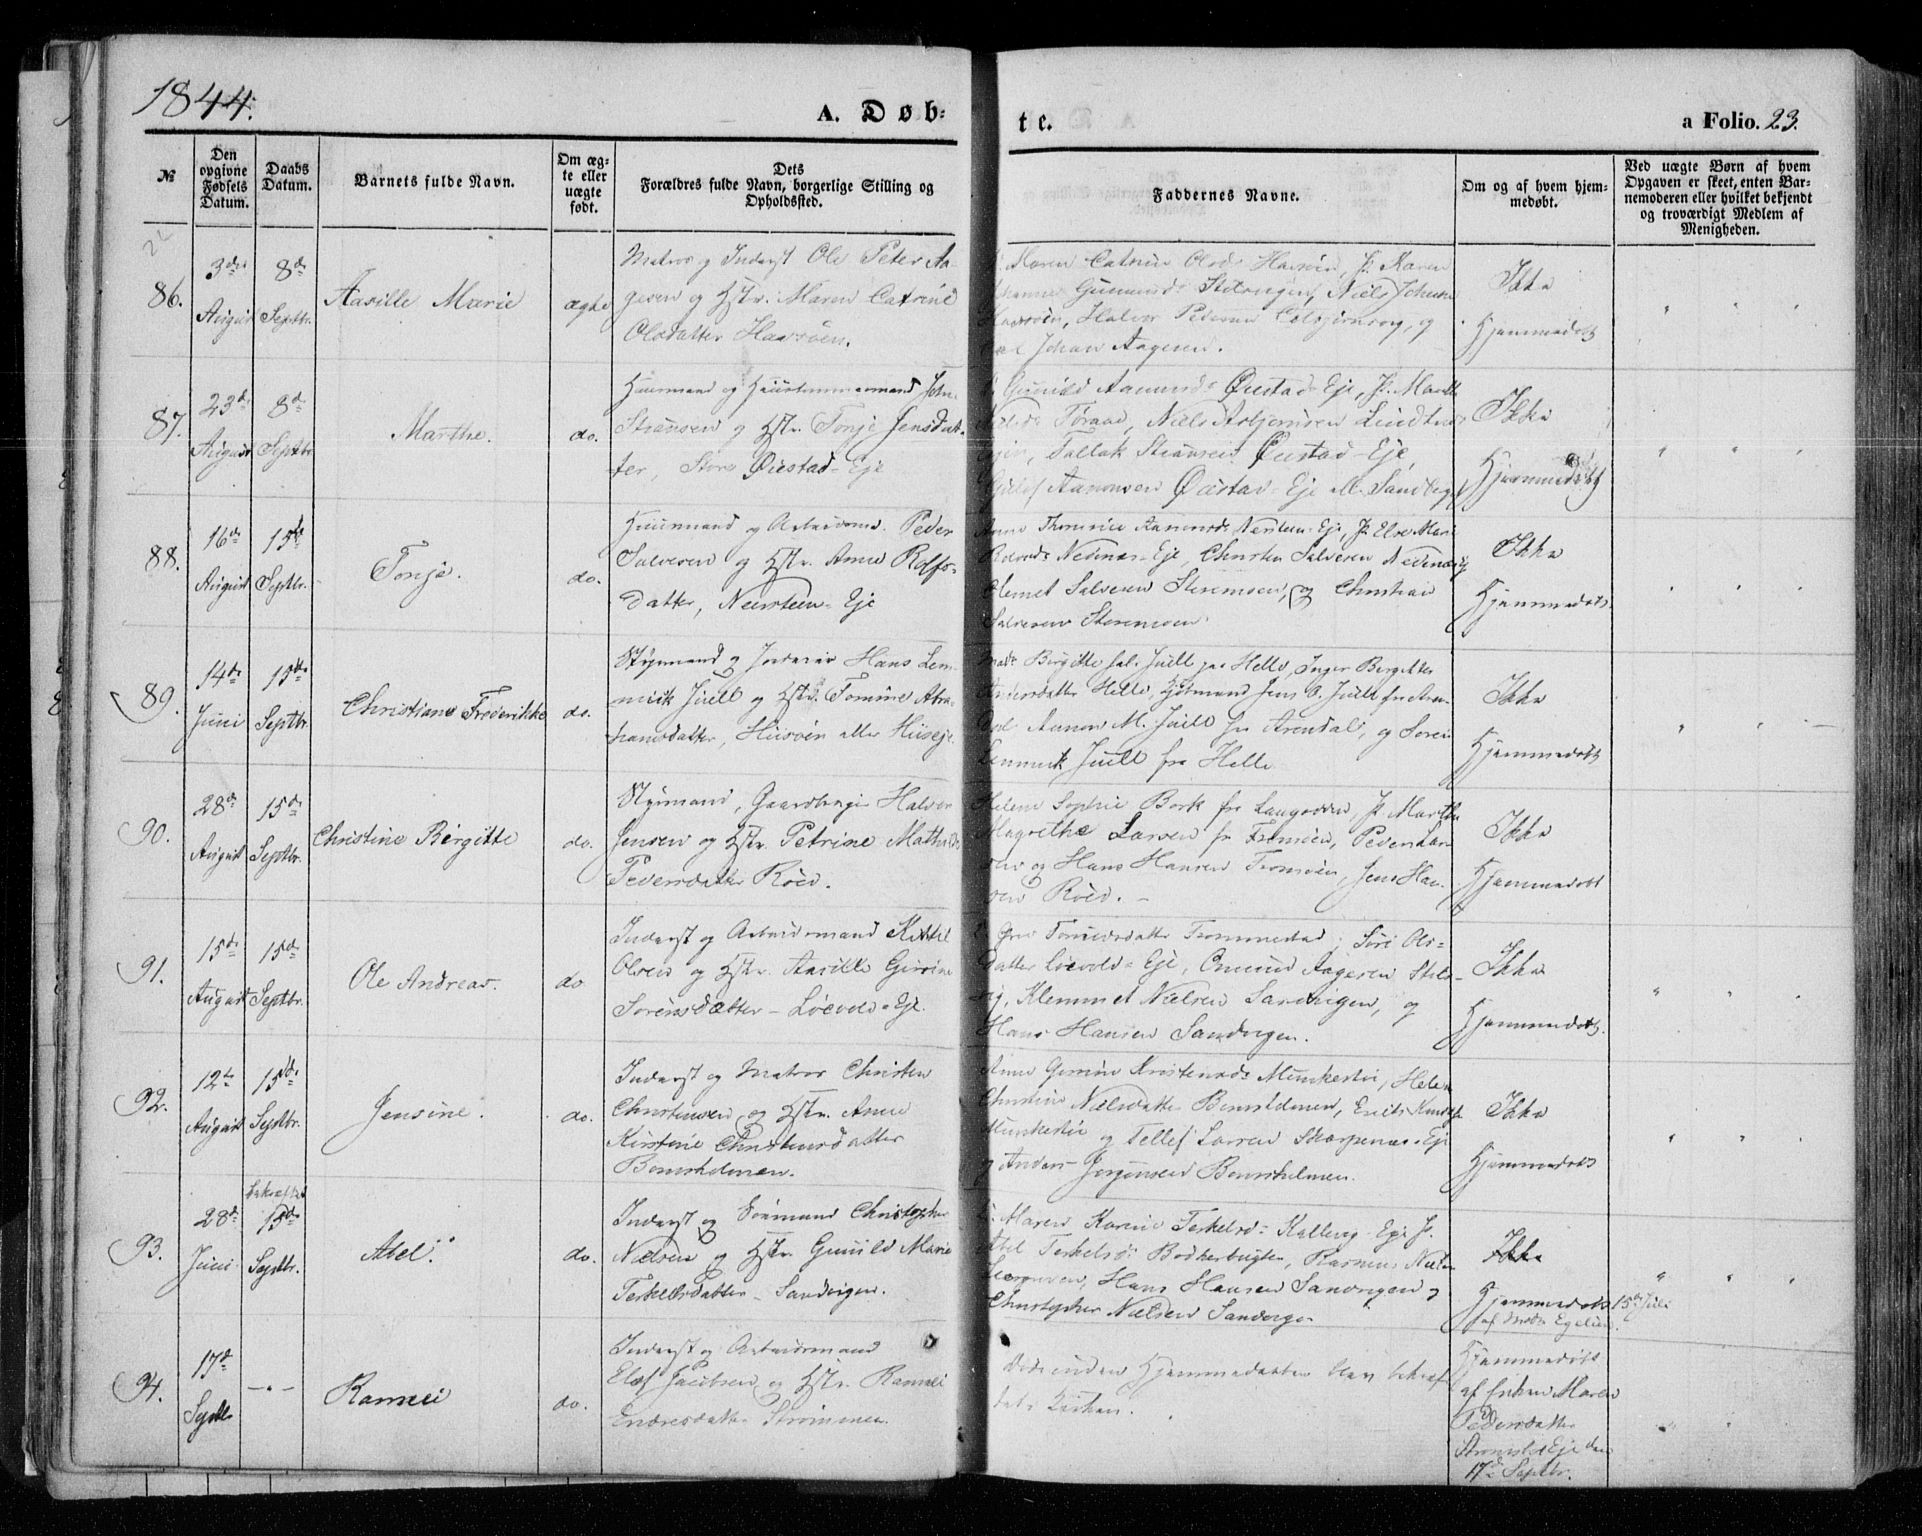 1844.
A. Døb-
te.
a Folio. 23.
№
Den opgivne Fødsels Datum.
Daabs Datum.
Barnets fulde Navn.
Om ægte eller uægte født.
Dets Forældres fulde Navn, borgerlige Stilling og Opholdssted.
Faddernes Navne.
Om og af hvem hjemmedøbt.
Ved uægte Børn af hvem Opgaven er skeet, enten Barnemoderen eller hvilket bekjendt og troværdigt Medlem af Menigheden.
86.
3de August
8de Septbr.
Aasille Marie
ægte
Matros og Inderst Ole Peter Aa-
gesen og Hstr. Maren Catrine
Olsdatter Havsøen.
Maren Catrine Olsd. Havsøen, P. Karen
Gunnersd. Stølsvigen, Niels Johnsen
Havsøen, Halvor Pedersen Colbjørnsvig, og
Johan Aagesen.
Ikke
Hjemmedøbt
87.
23de August
8de Septbr
Marthe.
do.
Huusmand og Huustømmermand John
Staussen og Hstr. Tonje Jensdat-
ter, Store Øiestad-Eje
Gunild Aanunds. Øiestad-Eje, P. Marthe
Niels Asbjørnsen
Tallak Staussen Øiestad-Eje,
Aanonsen Øiestad-Eje
Ikke
Hjemmedøbt
88.
16de August
15de Septbr.
Tonje.
do.
Huusmand og Arbeidsmd. Peder
Salvesen og Hstr. Anne Rolfs-
datter, Neersteen-Eje
Anne Thomine Aanonsd. Nersteen-Eje, P. Else Marie
Rolvsd. Nednæs-Eje, Christen Salvesen Nednæs
Clemet Salvesen Steremoen, og Christian
Salvesen Steremoen
Ikke
Hjemmedøbt.
89.
14de Juni
15de Septbr.
Christiane Frederikke
do.
Styrmand og Hans Lem-
mick Juell og Hstr. Tomine Abra-
hamsdatter, Hisøen eller Huseje
Mad. Birgitte sal. Juell paa Helle, Inger Birgitte
Andersdatter Helle, Jens B. Juell fra Aren-
dal, Aanon M. Juell fra Arendal, og Søren
Lemmick Juell fra Helle
Ikke
Hjemmedøbt
90.
28de August
15de Septbr.
Christine Birgitte
do.
Styrmand, Gaardbruger Halvor
Jensen og Hstr. Petrine Mathilde
Pedersdatter Røed.
Helene Sophie Bork fra Langodden, P. Marthe
Magrethe Larsen fra Tromøen, Peder Lar-
sen og Hans Hansen Tromøen, Jens Han-
sen Røed.
Ikke
Hjemmedøbt
91.
15de August
15de Septbr.
Ole Andreas.
do
Inderst og Arbeidsmand Kittil
Olsen og Hstr. Aasille Gurine
Sørensdatter - Løevold-Eje.
Tomine datter Trommestad, Siri Ols-
datter Løevold-Eje, Omund Aagesen Støls-
vig, Klemmet Nielsen Sandvigen, og
Hans Hansen Sandvigen.
Ikke
Hjemmedøbt.
92.
12te August
15de Septbr.
Jensine.
do.
Inderst og Matros Christen
Christensen og Hstr. Anne
Kirstine Christensdatter
Bomsholmen.
Anne Gurine Kristensd. Munketøe, Helene
Christine Nielsdatter Bomsholmen, Erik Knudsen
Munketøe og Tellef Larsen Skarpenæs-Eje
og Anders Jørgensen Bomsholmen.
Ikke
Hjemmedøbt
93.
28de Juni
bekræftet
15de Septbr.
Abel.
do.
Inderst og Sømand Christopher
Nielsen og Hstr. Gunild Marie
Terkelsdatter - Sandvigen.
Maren Karine Terkelsd. Kallevig-Eje P.
Abel Terkelsd. Bødkerbugten, Rasmus Nielsen
Hans Hansen Sandvigen og
Christopher Nielsen Sandvigen
Ikke
Hjemmedøbt 15de Juli
af Mad. Egelien.
94.
17de Septbr
Rannei
do.
Inderst og Arbeidsmand
Eluf Jacobsen og Hstr. Rannei
Endresdatter Strømmen.
Døde inden Hjemmedaaben blev bekræf-
tet i Kirken.
Hjemmedøbt
af Enken Maren
Pedersdatter
Eje den
17de Septbr.